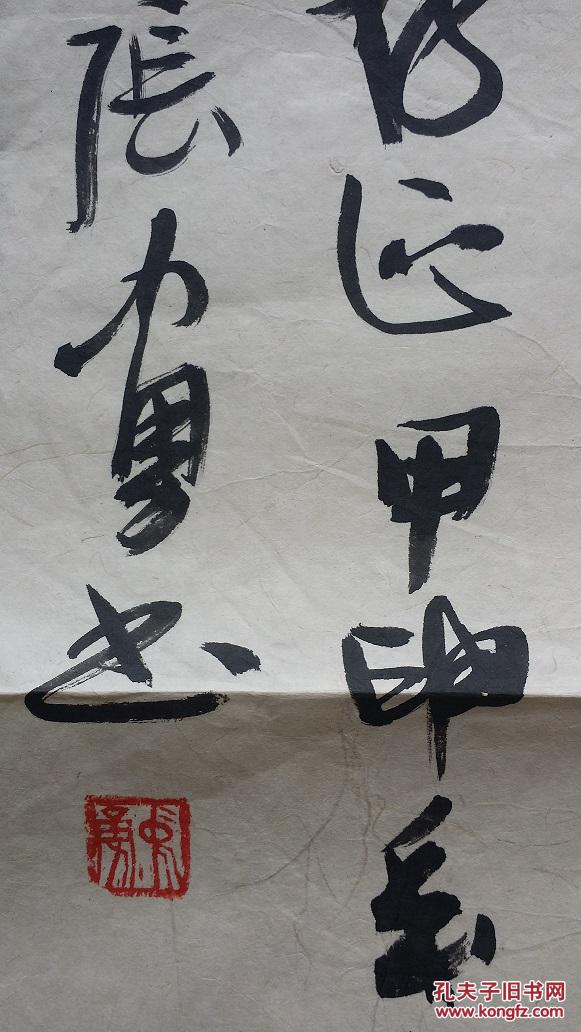 正甲申
张勇书
孔夫子旧书网
www.kongfz.com